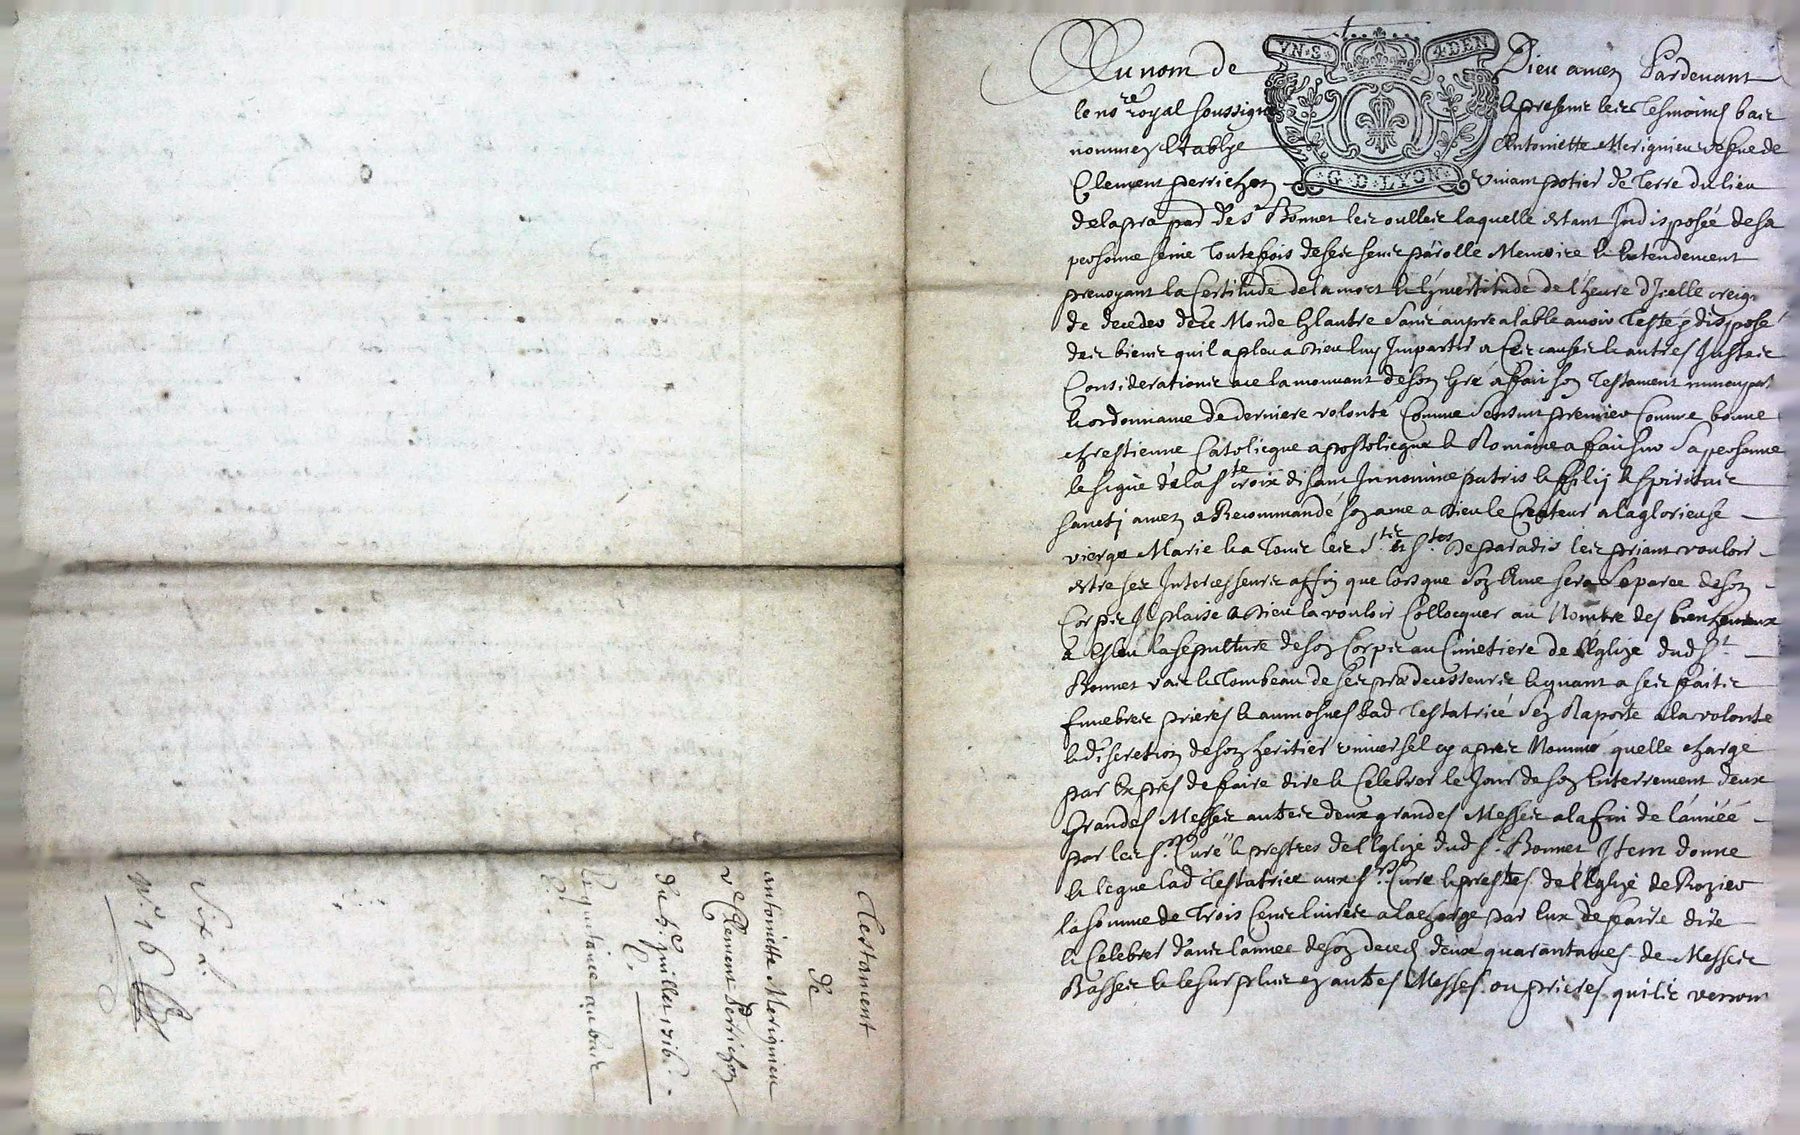 Testament
de
antoinette Merignieu
ve Clement Perrichon
du 6e Juillet 1716
C.
quitance au bas
Six l.
No 16
VN·S· 4·DEN
G·D·LYON
Au nom de Dieu amen Pardevant
le nore royal soussigné & presens les Tesmoins bas
nommez Establye Antoinette Merignieu vefve de
Clement perrichon vivant potier de Terre du lieu
de la pra par de st Bonnet les oulles laquelle estant Indisposée de sa
personne seine Toutesfois de ses sens parolle Memoire & Entendement
prevoyant la Certitude de la mort & l'Jncertitude de l'heure d'Jcelle
de deceder de ce Monde En lautre sans aupréalable avoir Testé & disposé
des biens quil a pleu a Dieu luy Impartir a ces causes & autres Justes
Considerations ace la mouvant de son Gré a ffait son Testament nuncupat
& ordonnance de derniere volonté Comme sensuit premier Comme bonne
chrestienne Catolicque apostolicque & Romaine a ffait sur sa personne
le signe de la ste croix disant In nomine patris & ffilij & spiritus
sanctj amen a Recommandé son ame a Dieu le Createur a la glorieuse
vierge Marie & a Tous les sts & stes de paradis les priant vouloir
estre ses Intercesseurs affin que lors que son Ame sera separee de son
Corps Il plaise a Dieu la vouloir Collocquer au Nombre des bienheureux
a Esleu la sepulture de son Corps au Cimetiere de l'Eglize dud st
Bonnet & Tombeau de ses predecesseurs & quant a ses ffaits
funebres prieres & aumosnes lad Testatrice s'en Raporte a la volonté
& discretion de son heritier universel cy apres Nommé quelle charge
par Expres de ffaire dire & Celebrer le Jour de son Enterrement deux
Grandes Messes autres deux grandes Messes a la fin de lannéé
par les srs Curé & prestres de l'Eglize dud st Bonnet Item donne
& legue lad Testatrice aux srs Curé & prestres de l'Eglize de Rozier
la somme de Trois Cens livres a la charge par Eux de ffaire dire
& Celebrer dans lannee de son deces deux quarantaines de Messes
Basses & le surplus en autres Messes ou prieres quils verront